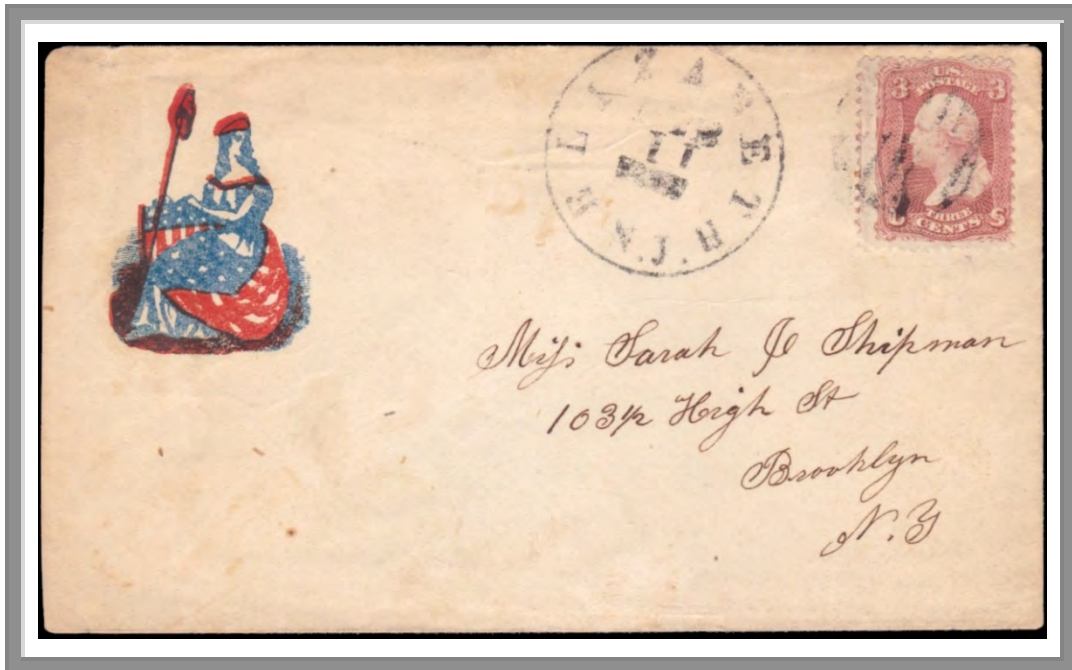 ELIZABETH N.J.
3 U.S. 3
POSTAGE
THREE
CENTS S
Miss Sarah J Shipman
103½ High St
Brooklyn
N.Y